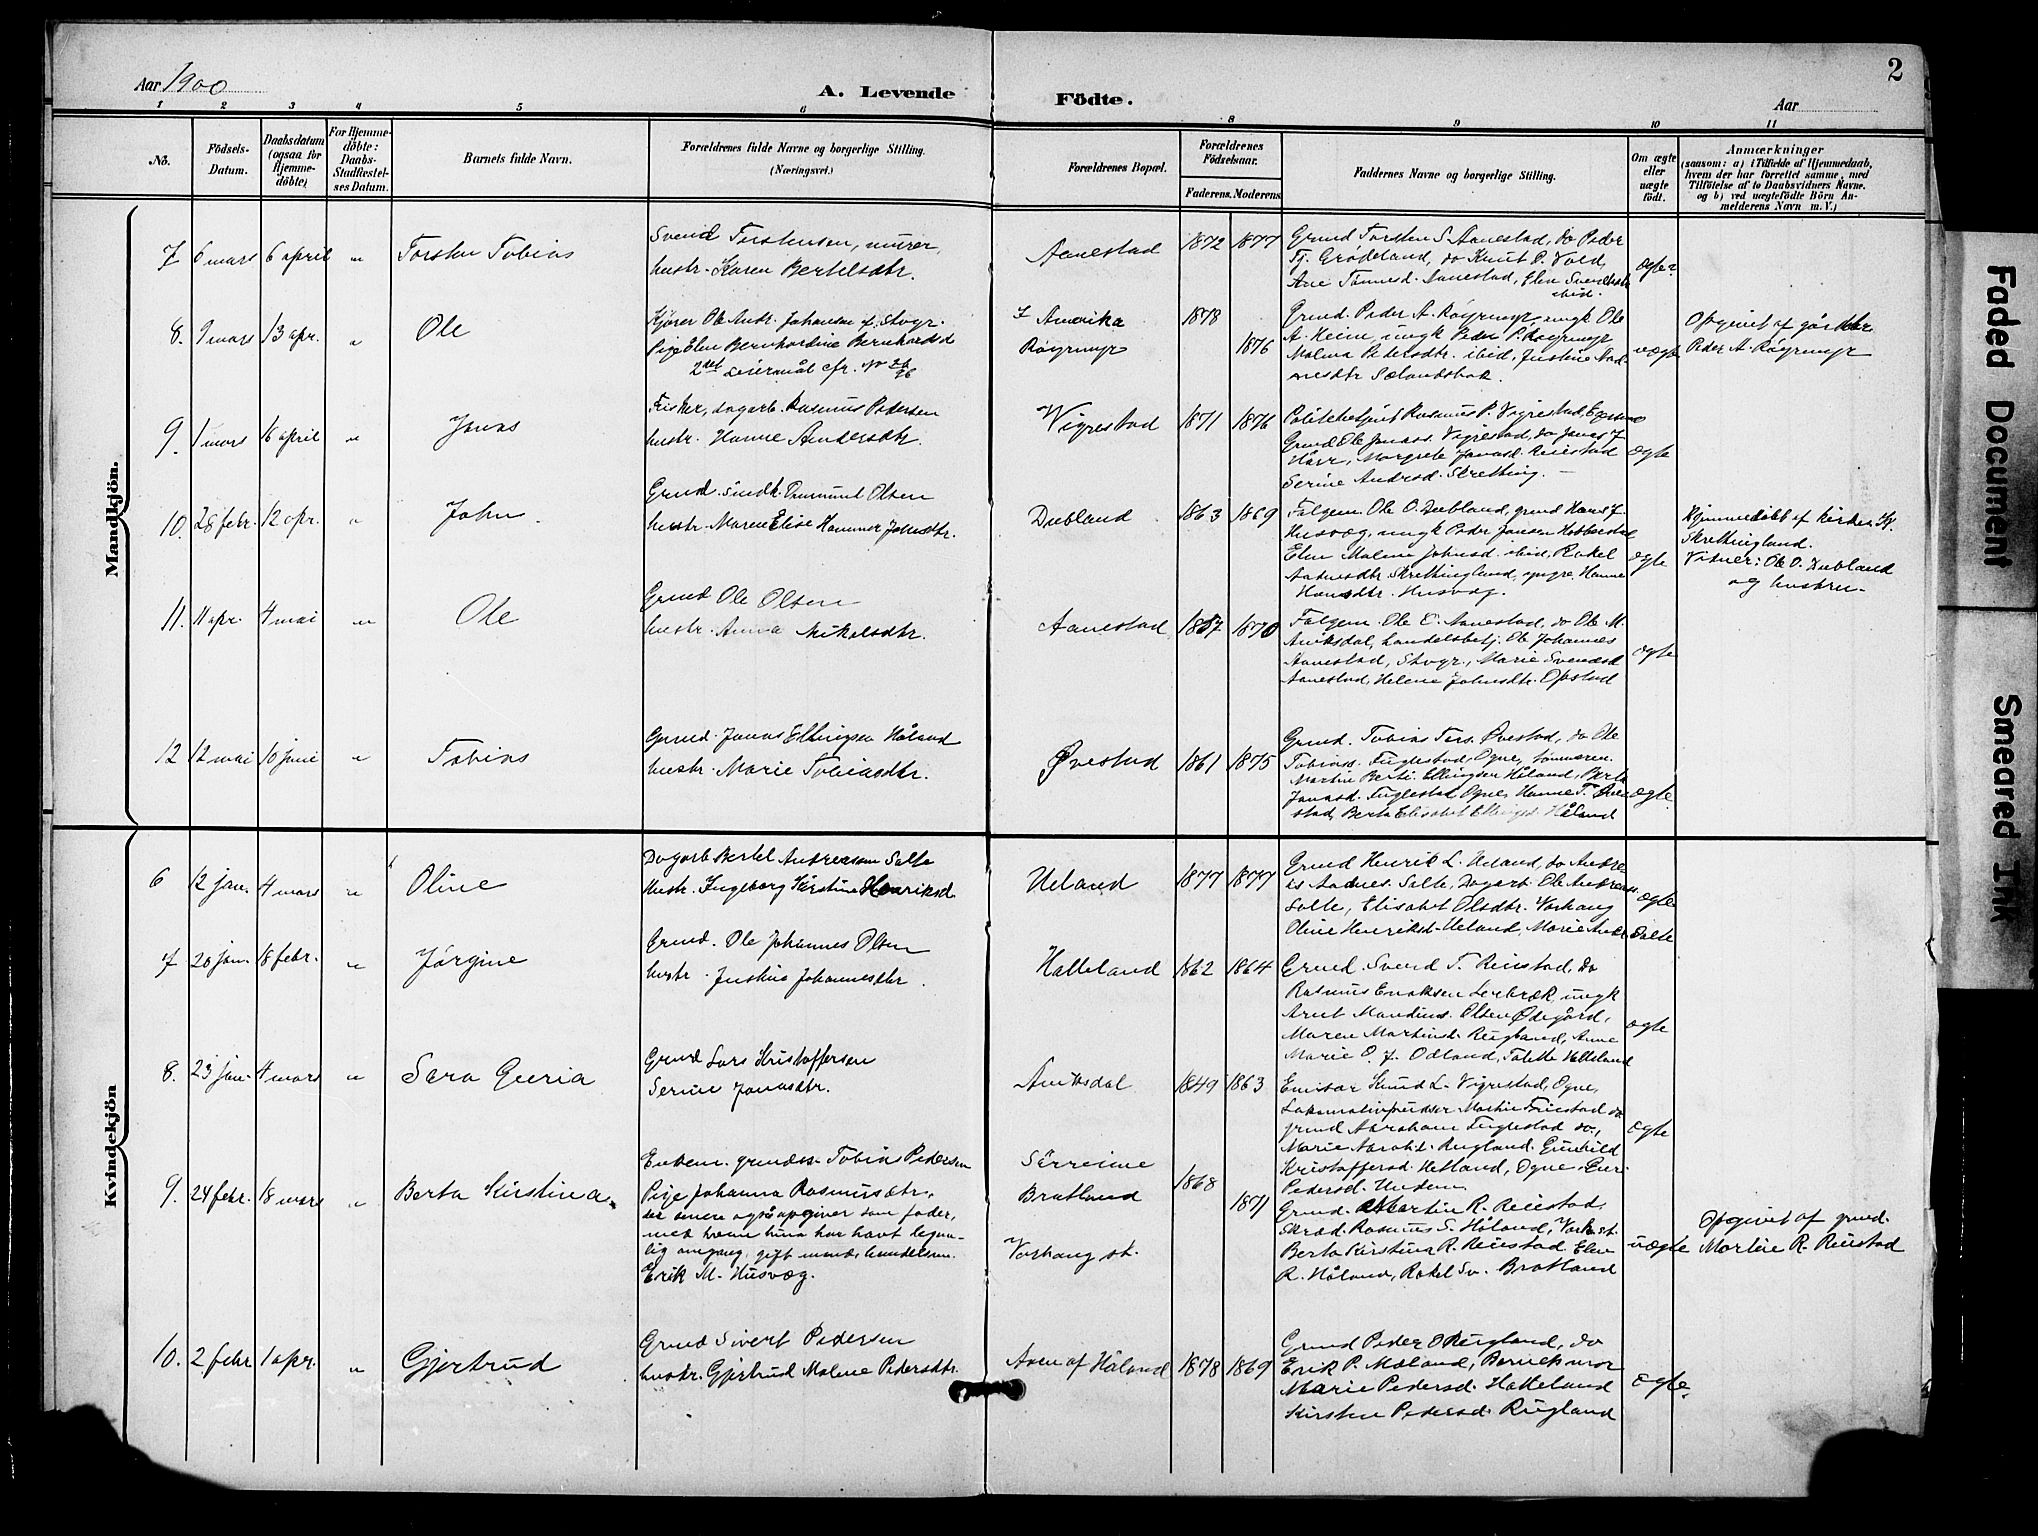 2
Aar 1900
A. Levende Födte.
Aar
1 2 3 4 5 6 8 9 10 11
No.
Födsels-Datum.
Daabsdatum (ogsaa for Hjemme-döbte)
For Hjemme-döbte: Daabs-Stadfæstel-ses Datum.
Barnets fulde Navn.
Forældrenes fulde Navne og borgerlige Stilling.
(Næringsvei.)
Forældrenes Bopæl.
Forældrenes Födselsaar.
Faderens. Moderens.
Faddernes Navne og borgerlige Stilling.
Om ægte eller uægte födt.
Anmærkninger
(saasom: a) i Tilfælde af Hjemmedaab,
hvem der har forrettet samme, med
Tilföielse af to Daabsvidners Navne.
og b) ved uægtefödte Börn An-
melderens Navn m. V.)
Mandkjön.
7 6 mars 6 april " Torsten Tobias
Svend Torstensen, murer,
hustr. Karen Bertelsdtr.
Aanestad 1872 1877
Grund Torsten S. Aanestad, do Peder
Tj. Grødeland, do Knut P. Vold,
Ane Tønnesd. Aanestad, Elen Svendsdtr
ibid.
ægte
8. 9 mars 13 apr. " Ole
Kjører Ole Andr. Johansen, Stvgr.
Pige Elen Bernhardine Bernhardsd
2det Leiermål cfr. No
Amerika
Røyrmyr
1878
1876
Grund. Peder A. Røyrmyr, ungk Ole
A. Heim, ungk Peder P. Røyrmyr
Malena Pedersdtr. ibid, Justine
Sælandsbak.
uægte
Opgivet af
Peder A. Røyrmyr
9. 1 mars 16 april " Jonas
Fisker, dagarb. Rasmus Pedersen
hustr. Hanne Andersdtr.
Vigrestad 1871 1876
Politibetjent Rasmus P. Vigrestad,
Grund Ole Jonass. Vigrestad, do Jonas J.
Håar, Margrete Jonasd. Reiestad
Serine Andersd. Skretting.
ægte
10. 28 febr. 12 apr. " John
Grund. Ommund Olsen
hustr. Maren Elise Hammer Johnsdtr.
Dubland 1863 1869
Følgem. Ole O. Dubland, grund Hans J.
Husvæg, ungk Peder Jansen
Elen Malene Johnsd. ibid, Rakel
Skrettingland, yngre Hanne
Hansdtr. Husvæg.
ægte
Hjemmedöbt af
Skrettingland.
Vidner: Ole O. Dubland
og hustru.
11. 11 apr. 4 mai " Ole
Grund Ole Olsen
hustr. Anna Mikelsdtr.
Aanestad 1857 1870
Følgem. Ole O. Aanestad, do Ole M.
Aniksdal, handelsbetj. Ole Johannes
Aanestad, Stvgr., Marie Svendsd
Aanestad, Helene Johnsdtr. Opstad
ægte
12 12 mai 10 juni " Tobias
Grund. Jonas Ellingsen Håland
hustr. Marie Tobiasdtr.
Øvestad 1861 1875
Grund. Tobias Tors. Øvestad, do Ole
Tobiass. Fuglestad, Ogne,
Martin Berti. Ellingsen Håland, Berta
Jonasd. Fuglestad Ogne, Hanne T. Øve-
stad, Berta Elisabet Ellingsd. Håland
ægte
Kvindekjön
6 12 jan. 4 mars " Oline
Dagarb Bertel Andreassen Salte
Hustr. Ingeborg Kirstine Henriksd
Ueland 1877 1877
Grund Henrik L. Ueland, do Andre
as Aadnes. Salte, Dagarb. Ole Andreass.
Salte, Elisabet Olsdtr. Varhaug
Oline Henriksd. Ueland, Marie Andr. Salte
ægte
7 20 jan. 18 febr. " Jörgine
Grund. Ole Johannes Olsen
hustr. Justina Johannesdtr.
Hatteland 1862 1864
Grund. Svend T. Reiestad, do
Rasmus Enoksen Lerbræk, ungk
Arnt Mandius. Olsen Ødegård,
Maren Martinsd. Rugland, Anne
Marie O. J. Odland, Talette Hatteland
ægte
8. 23 jan. 4 mars " Sara Guria
Grund Lars Kristoffersen
Serine Jonasdtr.
Aniksdal 1849 1863
Emissær Knud L. Vigrestad, Ogne,
Lokomativpudser Martin Friestad do
grund Abraham Fuglestad do.,
Marie Abrah. Rugland. Gunhild
Kristoffersd. Hetland, Ogne, Gur.
Pedersd.
ægte
9. 24 febr. 18 mars " Berta Kirstina.
Enkem. grundes. Tobias Pedersen
Pige Johanna Rasmusdtr.
der senere også opgiver som fader,
med hvem hun har havt legem-
lig omgang, gift mand, handelsm.
Erik M. Husvæg.
Sörreime
Bratland
Varhaug st.
1868
1871
Grund. Martin R. Reiestad,
Skræd. Rasmus S. Håland, Varh. st.
Berta Kirstina R. Reiestad Elen
R. Håland, Rakel Sv. Bratland
uægte
Opgivet af grund.
Martin R. Reiestad
10. 2 febr 1 apr. " Gjertrud
Grund Sivert Pedersen
hustr. Gjertrud Malene Pedersdtr.
Aven af Håland 1878 1869
Grund Peder O Rugland, do
Erik P. Mæland,
Marie Pedersd. Hatteland
Kirsten Pedersd. Rugland
ægte.
Faded Document
Smeared Ink